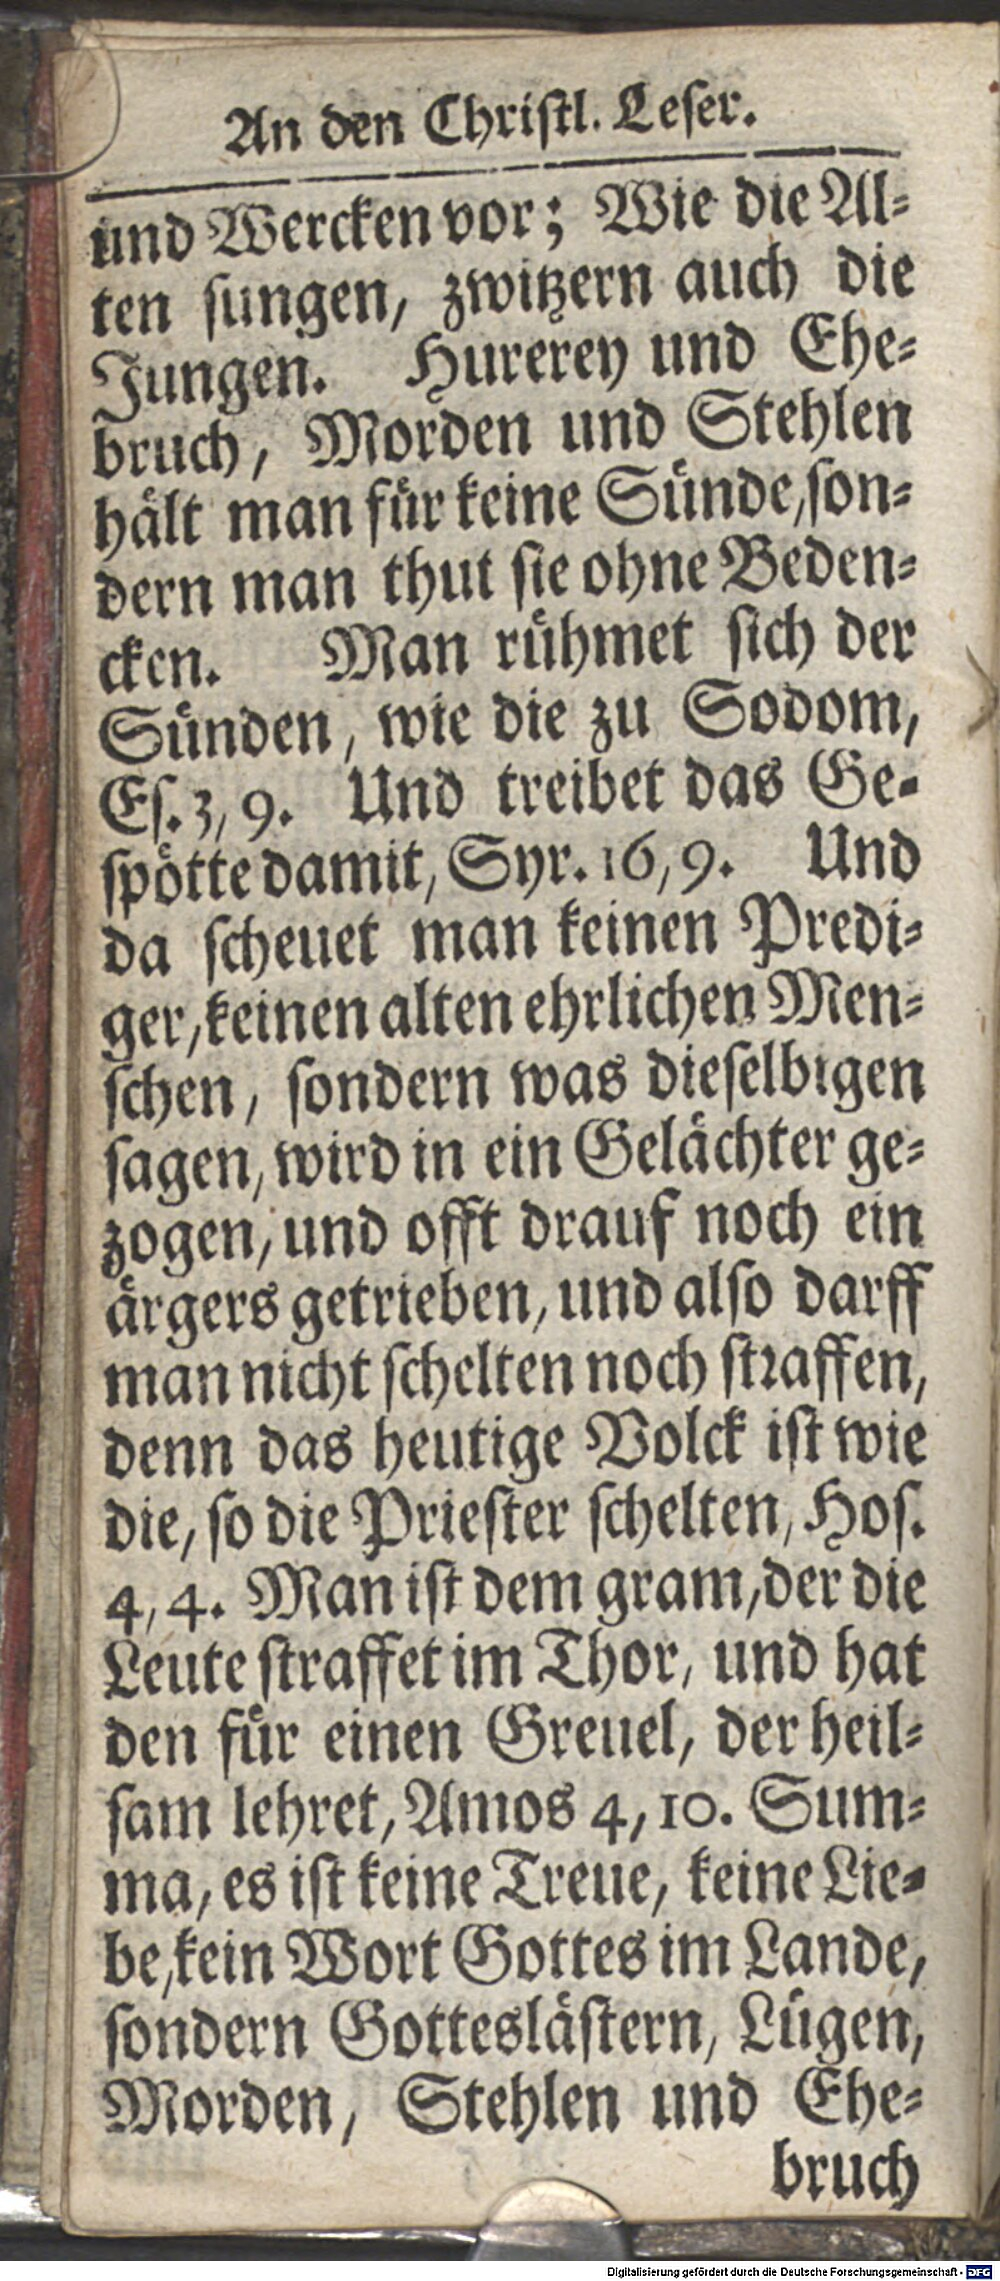 An den Christl. Leser.
und Wercken vor; Wie die Al-
ten sungen, zwitzern auch die
Jungen. Hurerey und Ehe-
bruch, Morden und Stehlen
hält man für keine Sünde, son-
dern man thut sie ohne Beden-
cken. Man rühmet sich der
Sünden, wie die zu Sodom,
Es. 3, 9. Und treibet das Ge-
spötte damit, Syr. 16, 9. Und
da scheuet man keinen Predi-
ger, keinen alten ehrlichen Men-
schen, sondern was dieselbigen
sagen, wird in ein Gelächter ge-
zogen, und offt drauf noch ein
ärgers getrieben, und also darff
man nicht schelten noch straffen,
denn das heutige Volck ist wie
die, so die Priester schelten, Hos.
4, 4. Man ist dem gram, der die
Leute straffet im Thor, und hat
den für einen Greuel, der heil-
sam lehret, Amos 4, 10. Sum-
ma, es ist keine Treue, keine Lie-
be, kein Wort Gottes im Lande,
sondern Gotteslästern, Lügen,
Morden, Stehlen und Ehe-
bruch
Digitalisierung gefördert durch die Deutsche Forschungsgemeinschaft - DFG